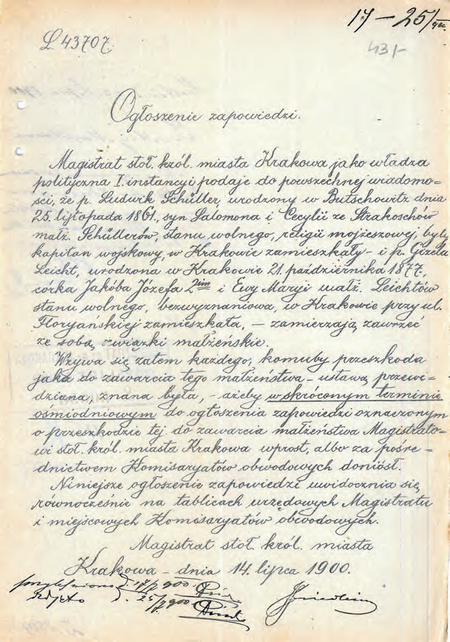 17 – 25/7 900.
L 43707.
431-
Ogłoszenie zapowiedzi.
Magistrat stoł. król. miasta Krakowa jako władza
polityczna I. instancyi podaje do powszechnej wiadomo-
ści, że p. Ludwik Schüller, urodzony w Butschowitz dnia
25. listopada 1861, syn Salomona i Cecylii ze Strakoschów
małż. Schüllerów, stanu wolnego, religii mojżeszowej, były
kapitan wojskowy, w Krakowie zamieszkały – i p. Gizela
Leicht, urodzona w Krakowie 21. października 1877,
córka Jakóba Józefa 2im i Ewy Maryi małż. Leichtów
stanu wolnego, bezwyznaniowa, w Krakowie przy ul.
Floryańskiej zamieszkała, – zamierzają zawrzeć
ze sobą związki małżeńskie.
Wzywa się zatem każdego, komuby przeszkoda
jaka do zawarcia tego małżeństwa – ustawą przewi-
dziana, znana była, – ażeby w skróconym terminie
ośmiodniowym do ogłoszenia zapowiedzi oznaczonym
o przeszkodzie tej do zawarcia małżeństwa Magistrato-
wi stoł. król. miasta Krakowa wprost, albo za pośre-
dnictwem Komisaryatów obwodowych doniósł.
Niniejsze ogłoszenie zapowiedzi uwidocznia się
równocześnie na tablicach urzędowych Magistratu
i miejscowych Komisaryatów obwodowych.
Magistrat stoł. król. miasta
Krakowa – dnia 14. lipca 1900.
przybito d. 17/7 900
zdjęto d. 25/7 900